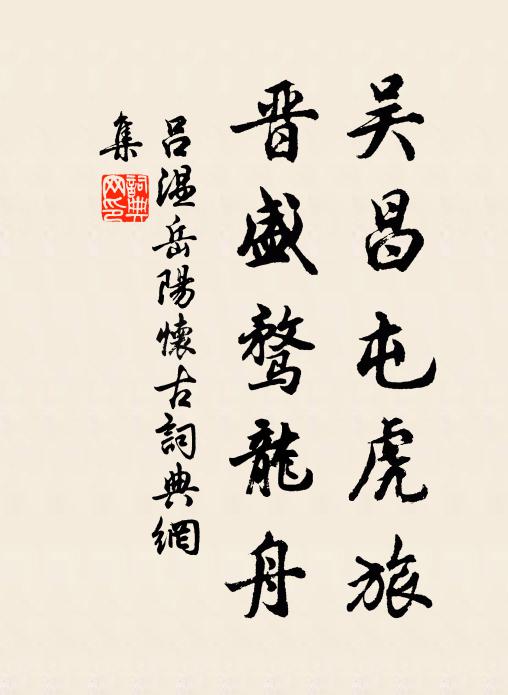 吴昌屯虎旅
晋盛骛龍舟
吕温岳陽懷古詞典網
集
詞典
网印